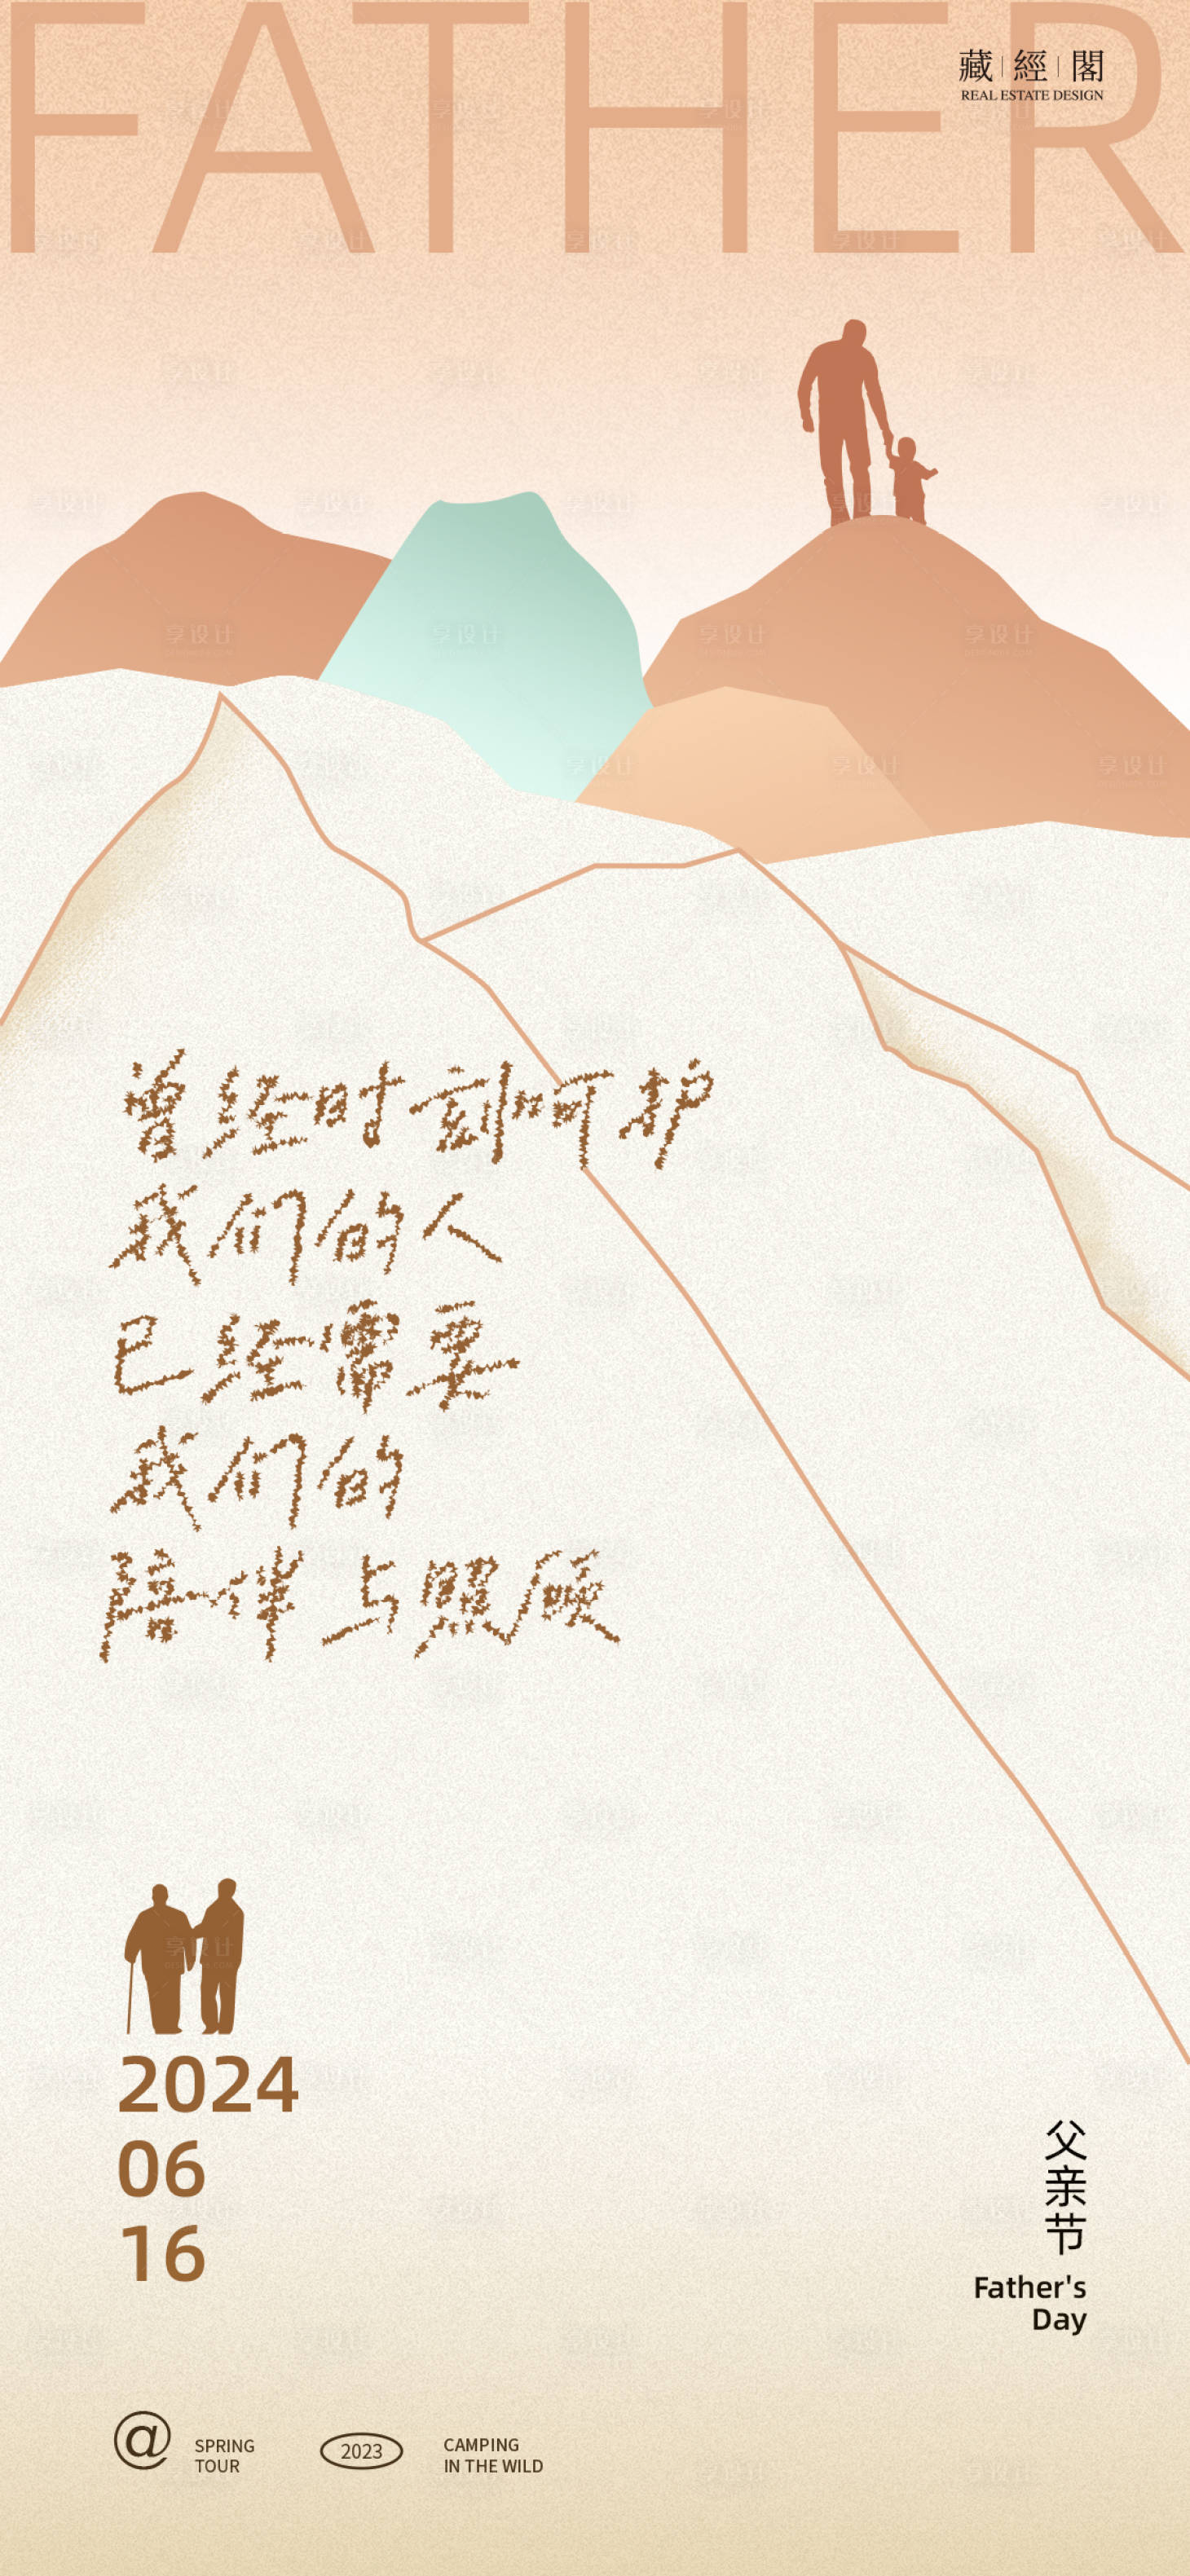 FATHER
藏 經 閣
REAL ESTATE DESIGN
曾经时刻呵护
我们的人
已经需要
我们的
陪伴与照顾
2024
06
16
父亲节
Father's
Day
@
SPRING
TOUR
2023
CAMPING
IN THE WILD
享设计